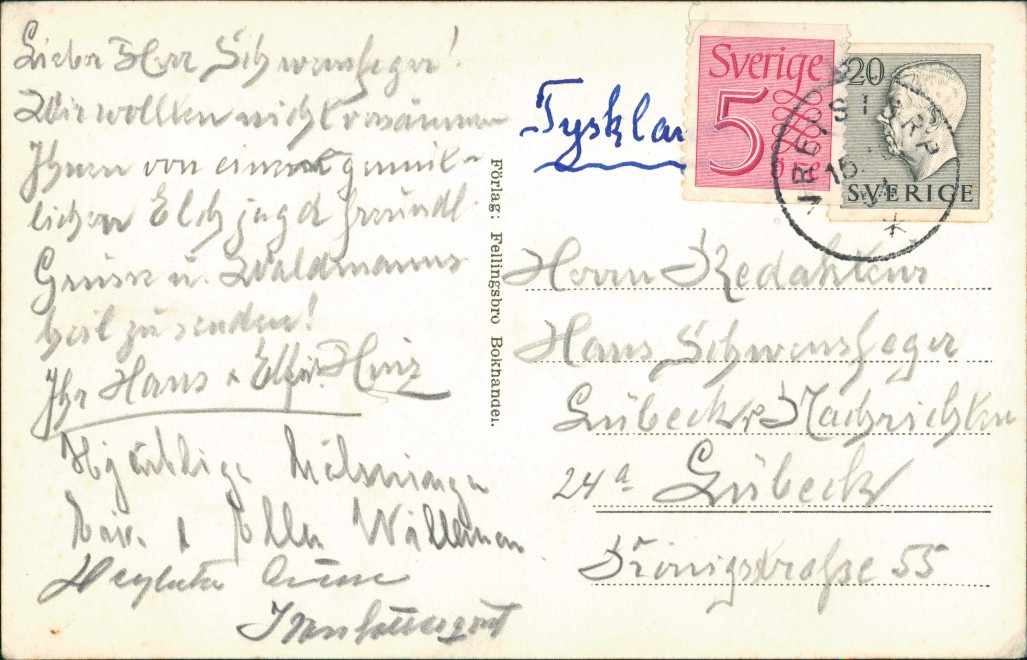 Lieber Herr Schwensfeger!
Wir wollten nicht versäumen
Ihnen von einer gemüt-
lichen Elchjagd freundl.
Grüsse u. Waldmanns
heil zu senden!
Ihr Hans + Hinz
Hjärtliga hälsningar
Förlag: Fellingsbro Bokhandel.
Tysklan
Sverige
5
öre
20
SVERIGE
15
Herrn Redakteur
Hans Schwensfeger
Lübecker Nachrichten
24a Lübeck
Königstraße 55